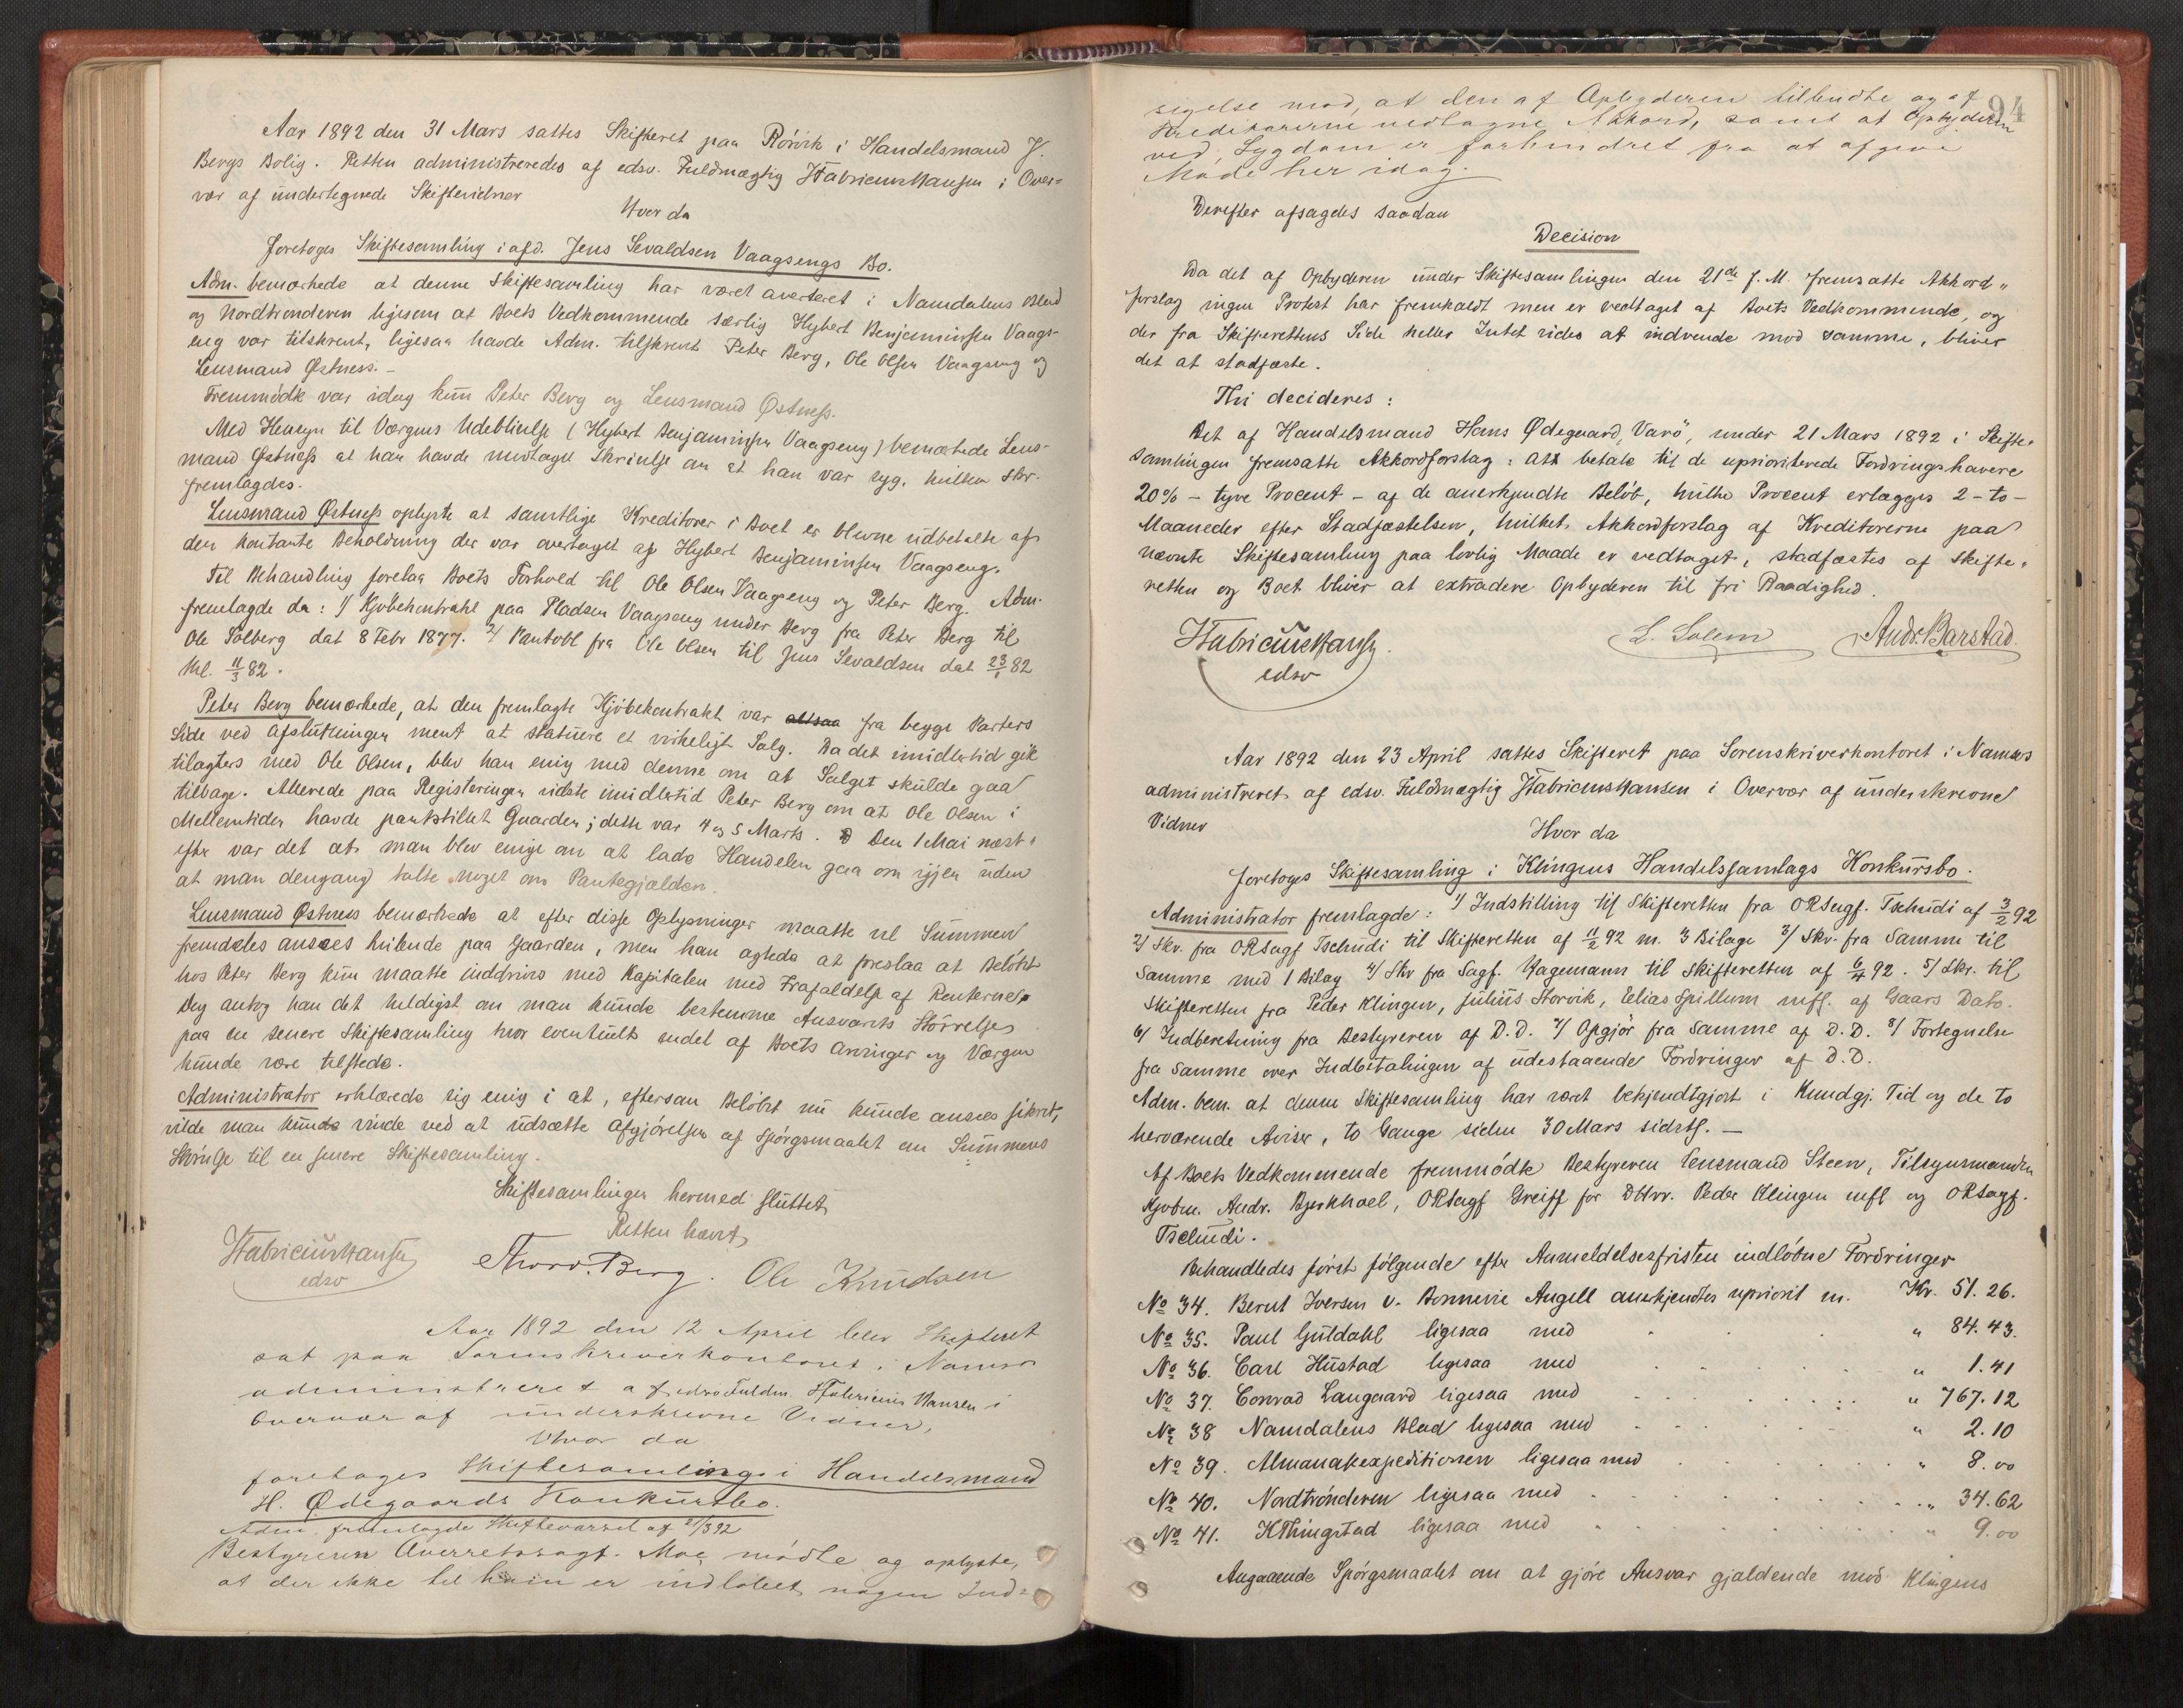 Aar 1892 den 31 Mars sattes Skifteret paa Rörvik i Handelsmand J.
Bergs Bolig. Retten administreredes af edsv. Fuldmægtig HFabriciusHansen i Over-
vær af undertegnede Skiftevidner
Hvor da
foretoges Skiftesamling i afd. Jens Sevaldsen Vaagsengs Bo.
Adm. bemærkede at denne Skiftesamling har været averteret i Namdalens Blad
og Nordtrønderen ligesom at Boets Vedkommende særlig Hybert Benjaminsen Vaags-
eng var tilskrevet, ligesaa havde Adm. tilskrevet Peter Berg, Ole Olsen Vaagseng og
Lensmand Østness.-
Fremmødt var idag kun Peter Berg og Lensmand Østness.
Med Hensyn til Værgens Udeblivelse (Hybert Benjaminsen Vaagseng) bemærkede Lens-
mand Østness at han havde modtaget Skrivelse om at han var syg, hvilken Skr.
fremlagdes.
Lensmand Østness oplyste at samtlige Kreditorer i Boet er blevne udbetalte af
den kontante Beholdning der var overtaget af Hybert Benjaminsen Vaagseng.
Til Behandling forelaa Boets Forhold til Ole Olsen Vaagseng og Peter Berg. Adm.
fremlagde da: 1/ Kjøbekontrakt paa Pladsen Vaagseng under Berg fra Peter Berg til
Ole Solberg dat 8 Febr 1877. 2/ Pantobl fra Ole Olsen til Jens Sevaldsen dat 23/1 82
thl. 11/3 82.
Peter Berg bemærkede, at den fremlagte Kjöbekontrakt var altsaa fra begge Parters
Side ved Afslutningen ment at statuere et virkeligt Salg. Da det imidlertid gik
tilagters med Ole Olsen, blev han enig med denne om at Salget skulde gaa
tilbage. Allerede paa Registeringen vidste imidlertid Peter Berg om at Ole Olsen i
Mellemtiden havde pantstillet Gaarden; dette var 4 og 5 Marts. Den 1 Mai næst-
efter var det at man blev enige om at lade Handelen gaa om igjen uden
at man dengang talte noget om Pantegjælden.
Lensmand Østness bemærkede at efter disse Oplysninger maatte vel Summen
fremdeles ansees hvilende paa Gaarden, men han agtede at foreslaa at Beløbet
hos Peter Berg kun maatte inddrives med Kapitalen med Frafaldelse af Renterne.
Dog antog han det heldigst om man kunde bestemme Ansvarets Størrelse
paa en senere Skiftesamling hvor eventuelt endel af Boets Arvinger og Værgen
kunde være tilstede.
Administrator erklærede sig enig i at, eftersom Beløbet nu kunde ansees sikret,
vilde man kunde vinde ved at udsætte Afgjörelsen af Spörgsmaalet om Summens
Størrelse til en senere Skiftesamling.
Skiftesamlingen hermed sluttet
Retten hævet
HFabriciusHansen
edsv
Thorv. Berg. Ole Knudsen
Aar 1892 den 12 April blev Skifteret
sat paa Sorenskriverkontoret i Namsos
administreret af edsv Fuldm. HFabricius Hansen i
Overvær af underskrevne Vidner,
Hvor da
foretoges Skiftesamling i Handelsmand
H. Ødegaards Konkursbo.
Adm. fremlagde Skiftevarsel af 21/3 92
Bestyreren Overretssagf. Moe mødte og oplyste,
at der ikke til ham er indløbet nogen Ind-
94
sigelse mod, at den af Opbyderen tilbudte og af
Kreditorerne vedtagne Akkord, samt at Opbyderen
ved Sygdom er forhindret fra at afgive
Møde her idag.
Derefter afsagdes saadan
Decision
Da det af Opbyderen under Skiftesamlingen den 21de f. M. fremsatte Akkord-
forslag ingen Protest har fremkaldt men er vedtaget af Boets Vedkommende, og
der fra Skifterettens Side heller Intet vides at indvende mod samme, bliver
det at stadfæste.
Thi decideres:
Det af Handelsmand Hans Ødegaard, Varö, under 21 Mars 1892 i Skifte-
samlingen fremsatte Akkordforslag: at betale til de uprioriterede Fordringshavere
20% - tyve Procent - af de anerkjendte Beløb, hvilke Procent erlægges 2 - to -
Maaneder efter Stadfæstelsen, hvilket Akkordforslag af Kreditorerne paa
nævnte Skiftesamling paa lovlig Maade er vedtaget, stadfæstes af Skifte-
retten og Boet bliver at extradere Opbyderen til fri Raadighed.
HFabriciusHansen.
edsv
L. Solem Andr. Barstad.
Aar 1892 den 23 April sattes Skifteret paa Sorenskriverkontoret i Namsos
administreret af edsv. Fuldmægtig HFabriciusHansen i Overvær af underskrevne
Vidner
Hvor da
foretoges Skiftesamling i Klingens Handelssamlags Konkursbo.
Administrator fremlagde: 1/ Indstilling til Skifteretten fra ORSagf. Tschudi af 3/2 92
2/ Skr. fra ORSagf Tschudi til Skifteretten af 11/2 92 m. 3 Bilage 3/ Skr. fra Samme til
Samme med 1 Bilag 4/ Skr fra Sagf. Hagemann til Skifteretten af 6/4 92. 5/ Skr. til
Skifteretten fra Peder Klingen, Julius Storvik, Elias Spillum mfl. af Gaars Dato.
6/ Indberetning fra Bestyreren af D.D. 7/ Opgjör fra Samme af D.D. 8/ Fortegnelse
fra Samme over Indbetalingen af udestaaende Fordringer af D.D.
Adm. bem. at denne Skiftesamling har været bekjendtgjort i Kundgj. Tid og de to
herværende Aviser, to Gange siden 30 Mars sidstl. -
Af Boets Vedkommende fremmödte Bestyreren Lensmand Steen, Tilsynsmanden
Kjøbm. Andr. Bjerkhoel, ORSagf Greiff for DHrr. Peder Klingen mfl og ORSagf.
Tschudi.
Behandledes först fölgende efter Anmeldelsesfristen indløbne Fordringer
No 34. Bernt Iversen v. Bonnevie Angell anerkjendtes upriorit m. Kr. 51.26.
No 35. Paul Guldahl ligesaa med " 84.43.
No 36. Carl Hustad ligesaa med " 1.41
No 37. Conrad Langaard ligesaa med " 767.12
No 38 Namdalens Blad ligesaa med " 2.10
No 39. Almanakexpeditionen ligesaa med " 8.00
No 40. Nordtrönderen ligesaa med " 34.62
No 41. KThingstad ligesaa med " 9.00
Angaaende Spörgsmaalet om at gjöre Ansvar gjældende mod Klingens